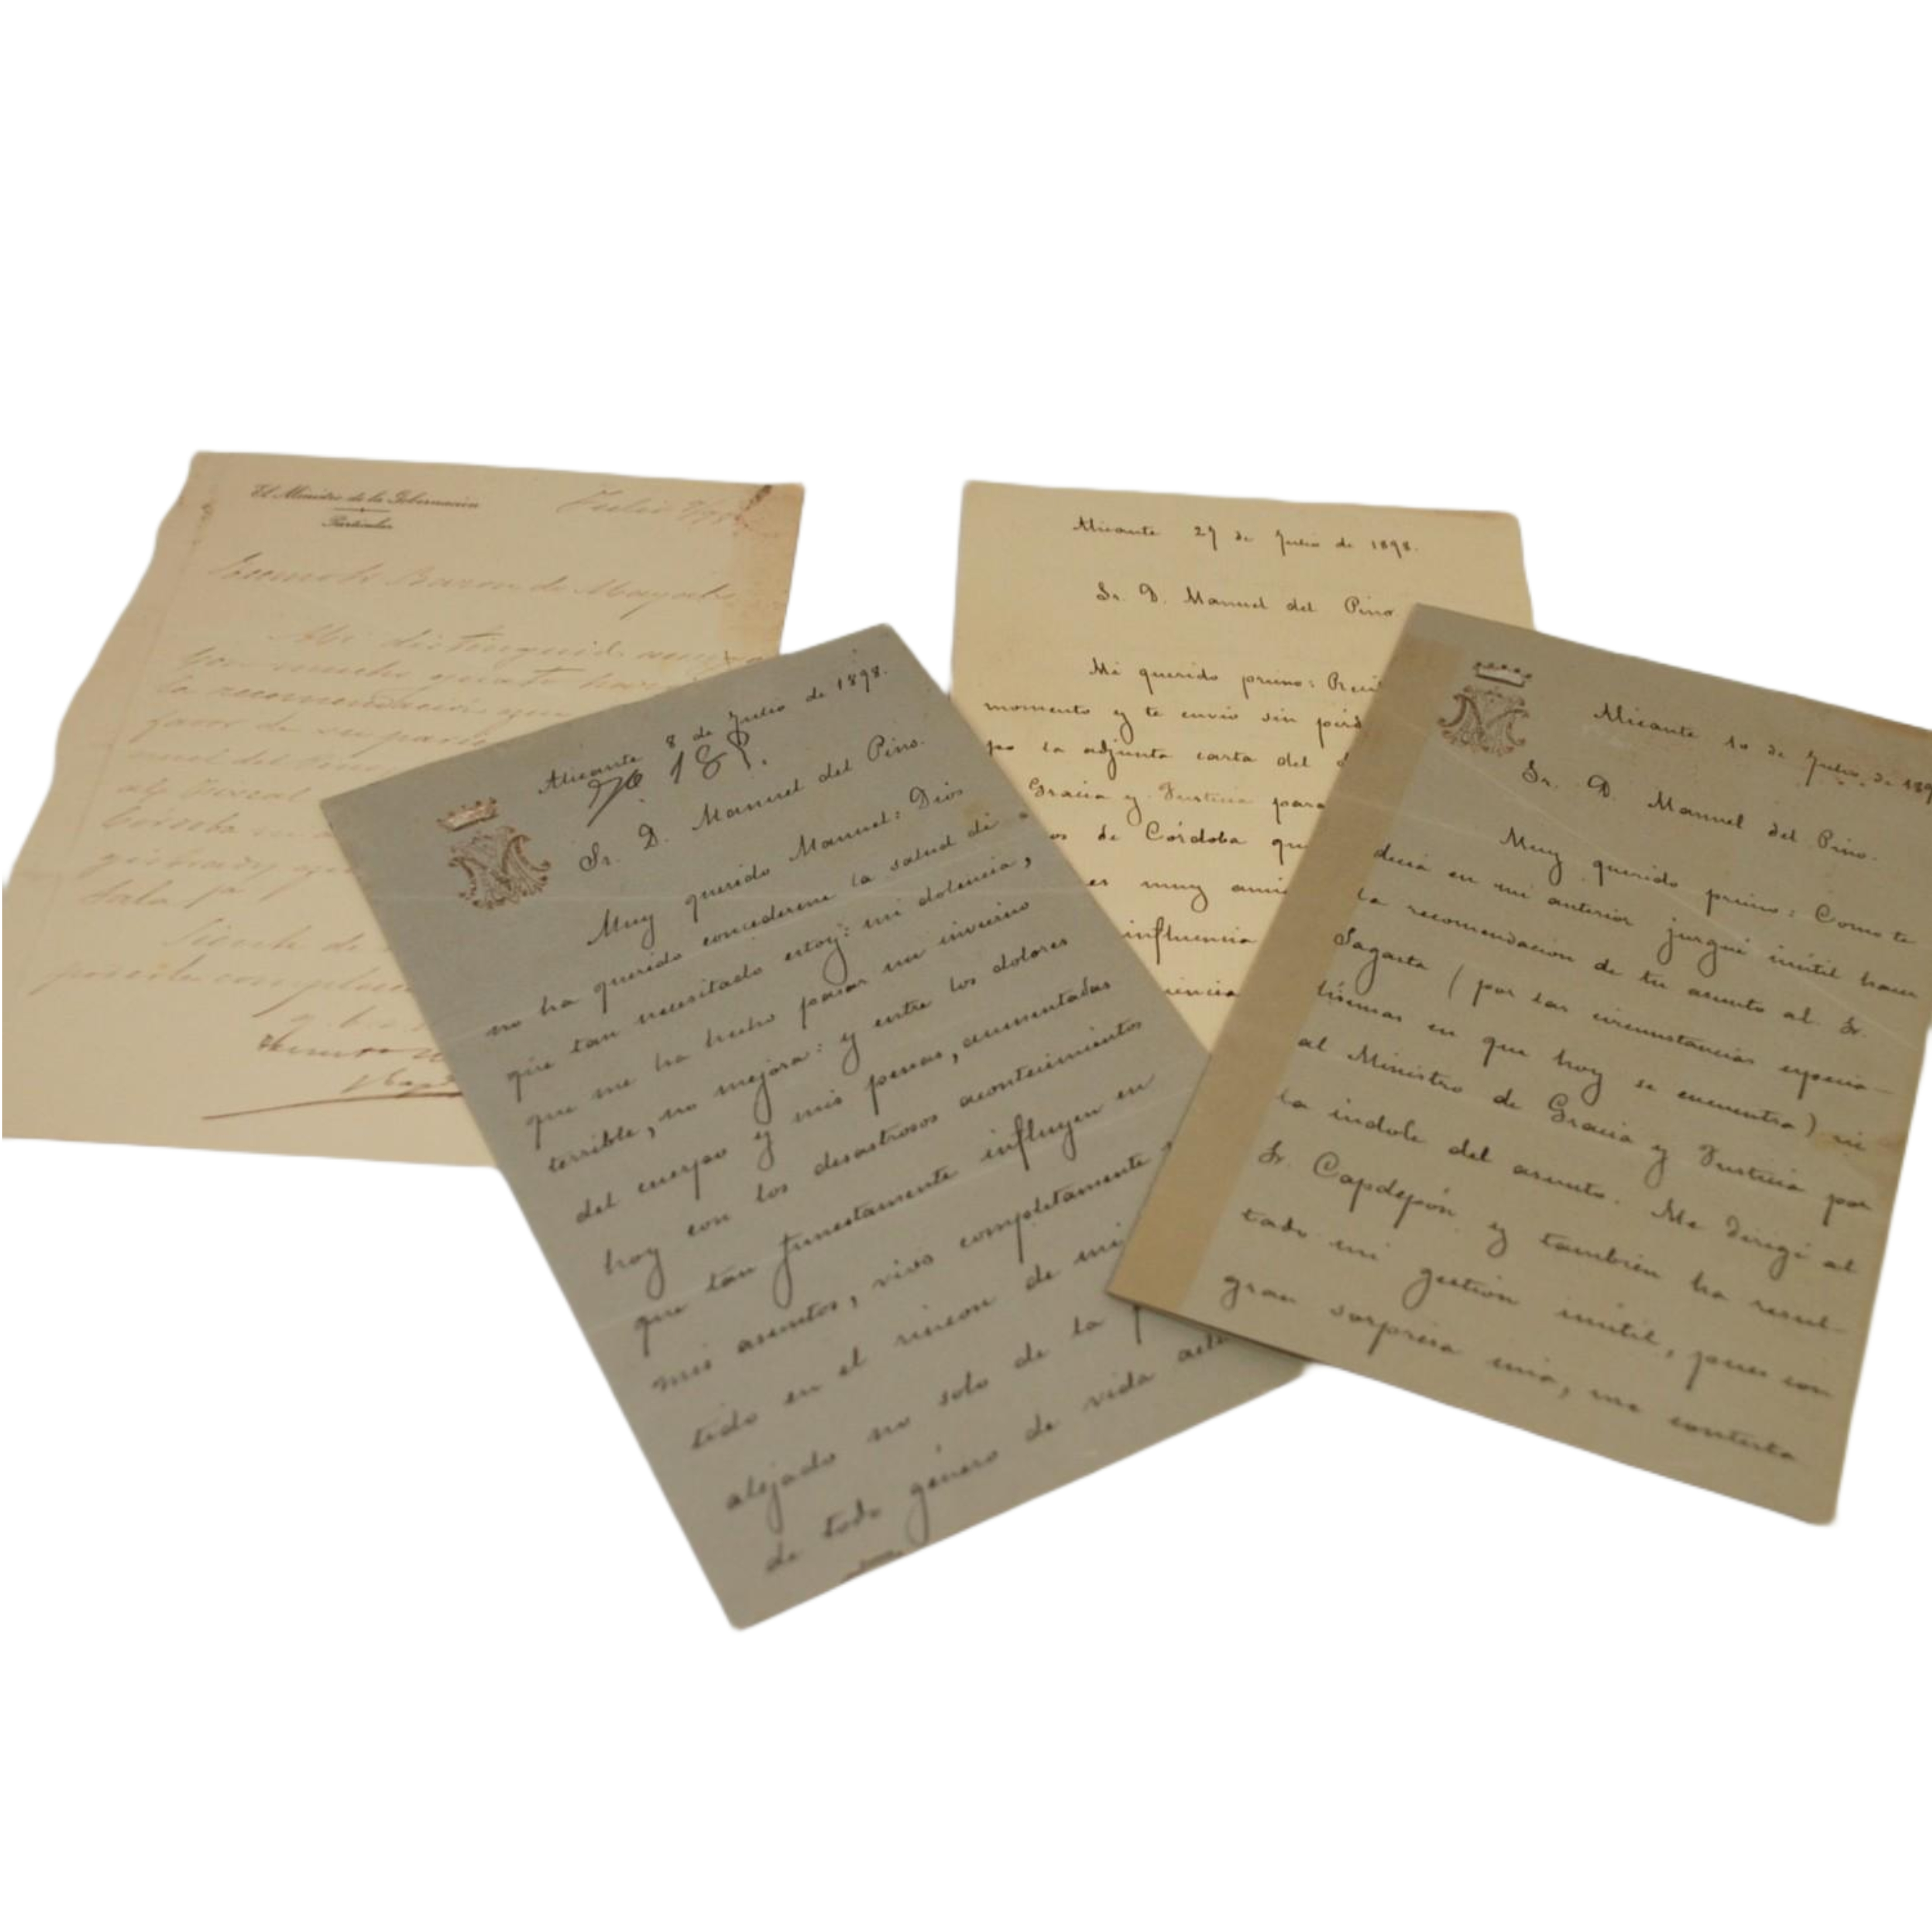 El Ministro de la Gobernación
Particular
Julio
Excmo Sr Baron de Mayals
Mi distinguido amigo
Con mucho gusto haré
la recomendacion que
favor de su parie
nuel del Pino
al Fiscal
Córdoba
Sala pa
Siente
Alicante 8 de Julio de 1898.
Sr. D. Manuel del Pino.
Muy querido Manuel: Dios
no ha querido concederme la salud de
que tan necesitado estoy: mi dolencia,
que me ha hecho pasar un invierno
terrible, no mejora: y entre los dolores
del cuerpo y mis penas, aumentadas
hoy con los desastrosos acontecimientos
que tan funestamente influyen en
mis asuntos, vivo completamente
tido en el rincon de mi
alejado no solo de la p
de todo género de vida acti
Alicante 27 de Julio de 1898.
Sr. D. Manuel del Pino
Mi querido primo: Reci
momento y te envio sin pérd
po la adjunta carta del
Gracia y Justicia para
os de Córdoba qu
es muy ami
influencia
uencia
M
Alicante 10 de Julio de 189
Sr. D. Manuel del Pino.
Muy querido primo: Como te
decia en mi anterior juzgué inútil hacer
la recomendacion de tu asunto al Sr.
Sagasta (por las circunstancias especia-
lísimas en que hoy se encuentra) ni
al Ministro de Gracia y Justicia por
la índole del asunto. Me dirigí al
Sr. Capdepón y también ha resul-
tado mi gestión inútil, pues con
gran sorpresa mia, me contesta